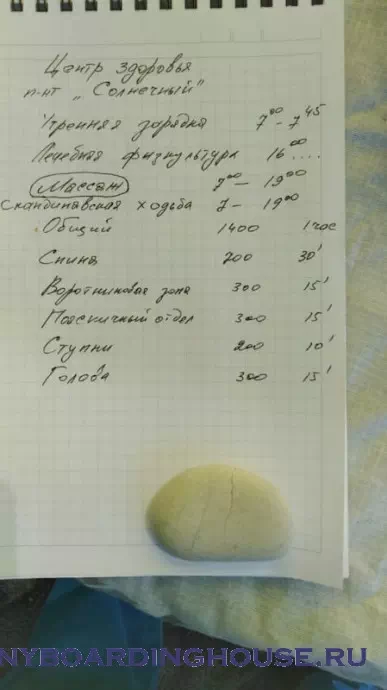 Центр здоровья
п-нт „Солнечный"
Утренняя зарядка 7⁰⁰ - 7⁴⁵
Лечебная физкультура 16⁰⁰ ....
Массаж 7⁰⁰ — 19⁰⁰
Скандинавская ходьба 7 — 19⁰⁰
Общий 1400 1 час
Спина 700 30'
Воротниковая зона 300 15'
Поясничный отдел 300 15'
Ступни 200 10'
Голова 300 15'
NYBOARDINGHOUSE.RU